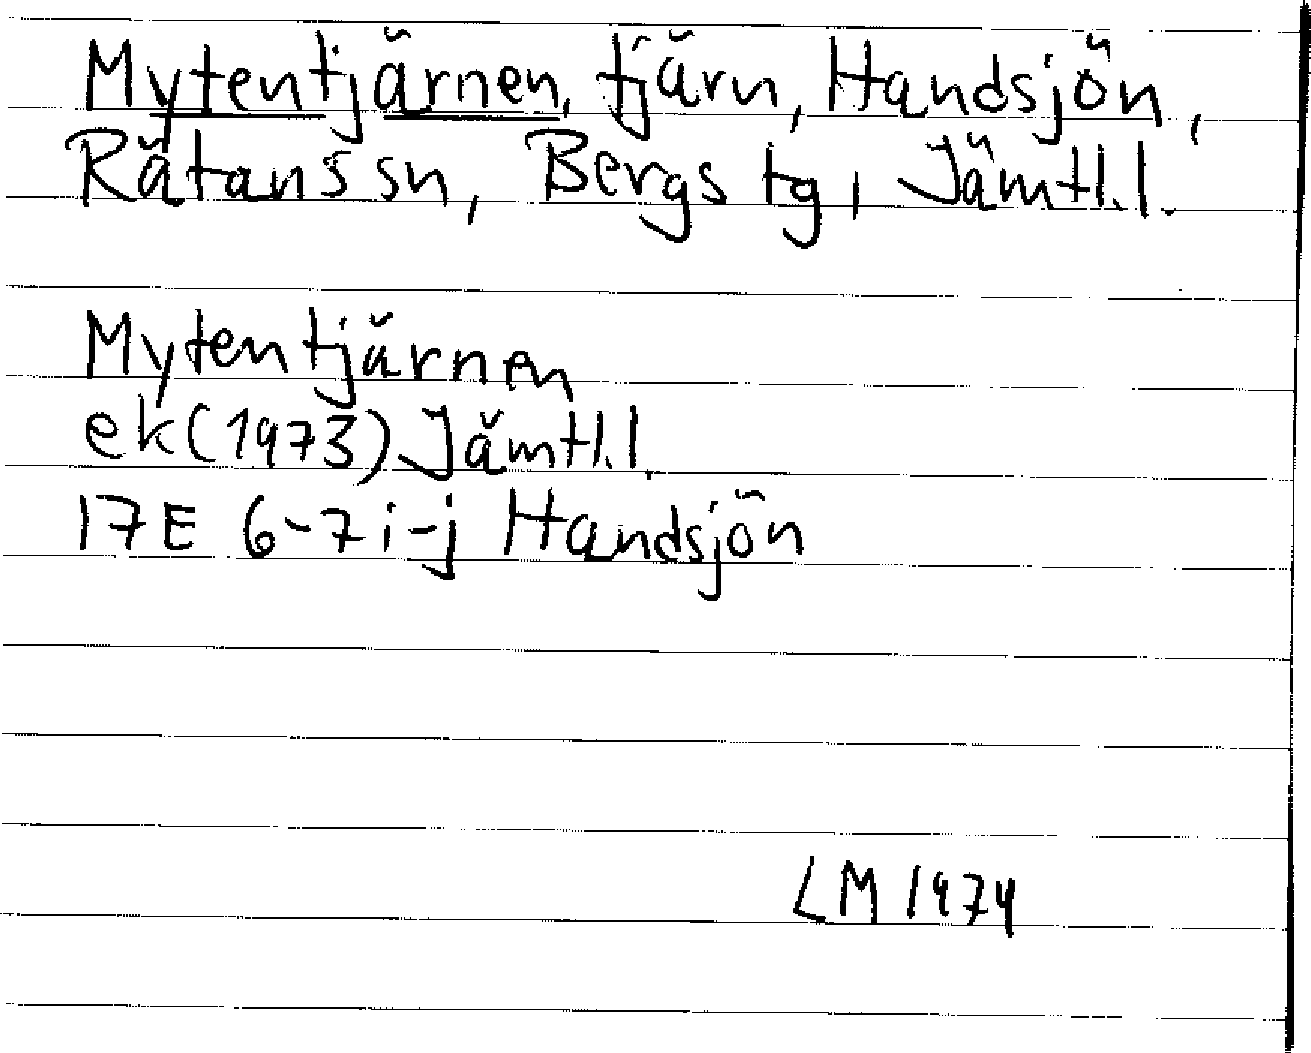 Mytentjärnen, tjärn, Handsjön,
Rätans sn, Bergs tg, Jämtl.l.
Mytentjärnen
ek(1973) Jämtl.l.
17E 6-7i-j Handsjön
LM 1974